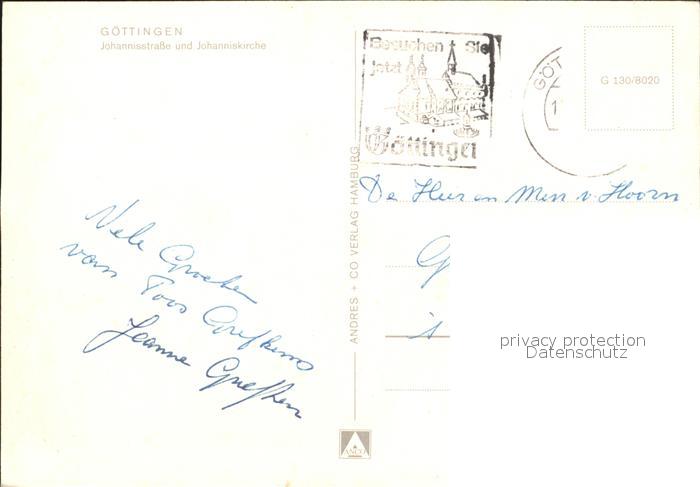 GÖTTINGEN
Johannisstraße und Johanniskirche
Besuchen Sie
jetzt
Göttingen
GÖT
1
G 130/8020
ANDRES + CO VERLAG HAMBURG
De Heer en Mevr v. Hoorn
G
's
Vele Groeten
van Toos
Jeanne
privacy protection
Datenschutz
ANCO